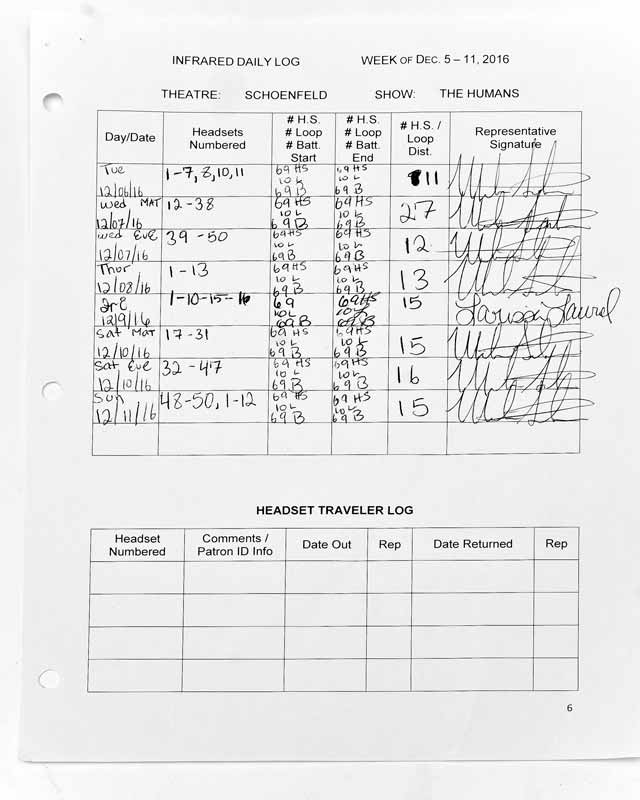 INFRARED DAILY LOG WEEK OF DEC. 5 – 11, 2016
THEATRE: SCHOENFELD SHOW: THE HUMANS
Day/Date Headsets Numbered # H.S. # Loop # Batt. Start # H.S. # Loop # Batt. End # H.S. / Loop Dist. Representative Signature
Tue 12/06/16 1-7, 8, 10, 11 69 HS 10 L 69 B 69 HS 10 L 69 B 11
Wed MAT 12/07/16 12-38 69 HS 10 L 69 B 69 HS 10 L 69 B 27
Wed Eve 12/07/16 39-50 69 HS 10 L 69 B 69 HS 10 L 69 B 12
Thur 12/08/16 1-13 69 HS 10 L 69 B 69 HS 10 L 69 B 13
Fri 12/9/16 1-10-15-16 69 10 L 69 B 69 HS 69 B 15 Larissa Laurel
Sat Mat 12/10/16 17-31 69 HS 10 L 69 B 69 HS 10 L 69 B 15
Sat Eve 12/10/16 32-47 69 HS 10 L 69 B 69 HS 10 L 69 B 16
Sun 12/11/16 48-50, 1-12 69 HS 10 L 69 B 69 HS 10 L 69 B 15
HEADSET TRAVELER LOG
Headset Numbered Comments / Patron ID Info Date Out Rep Date Returned Rep
6